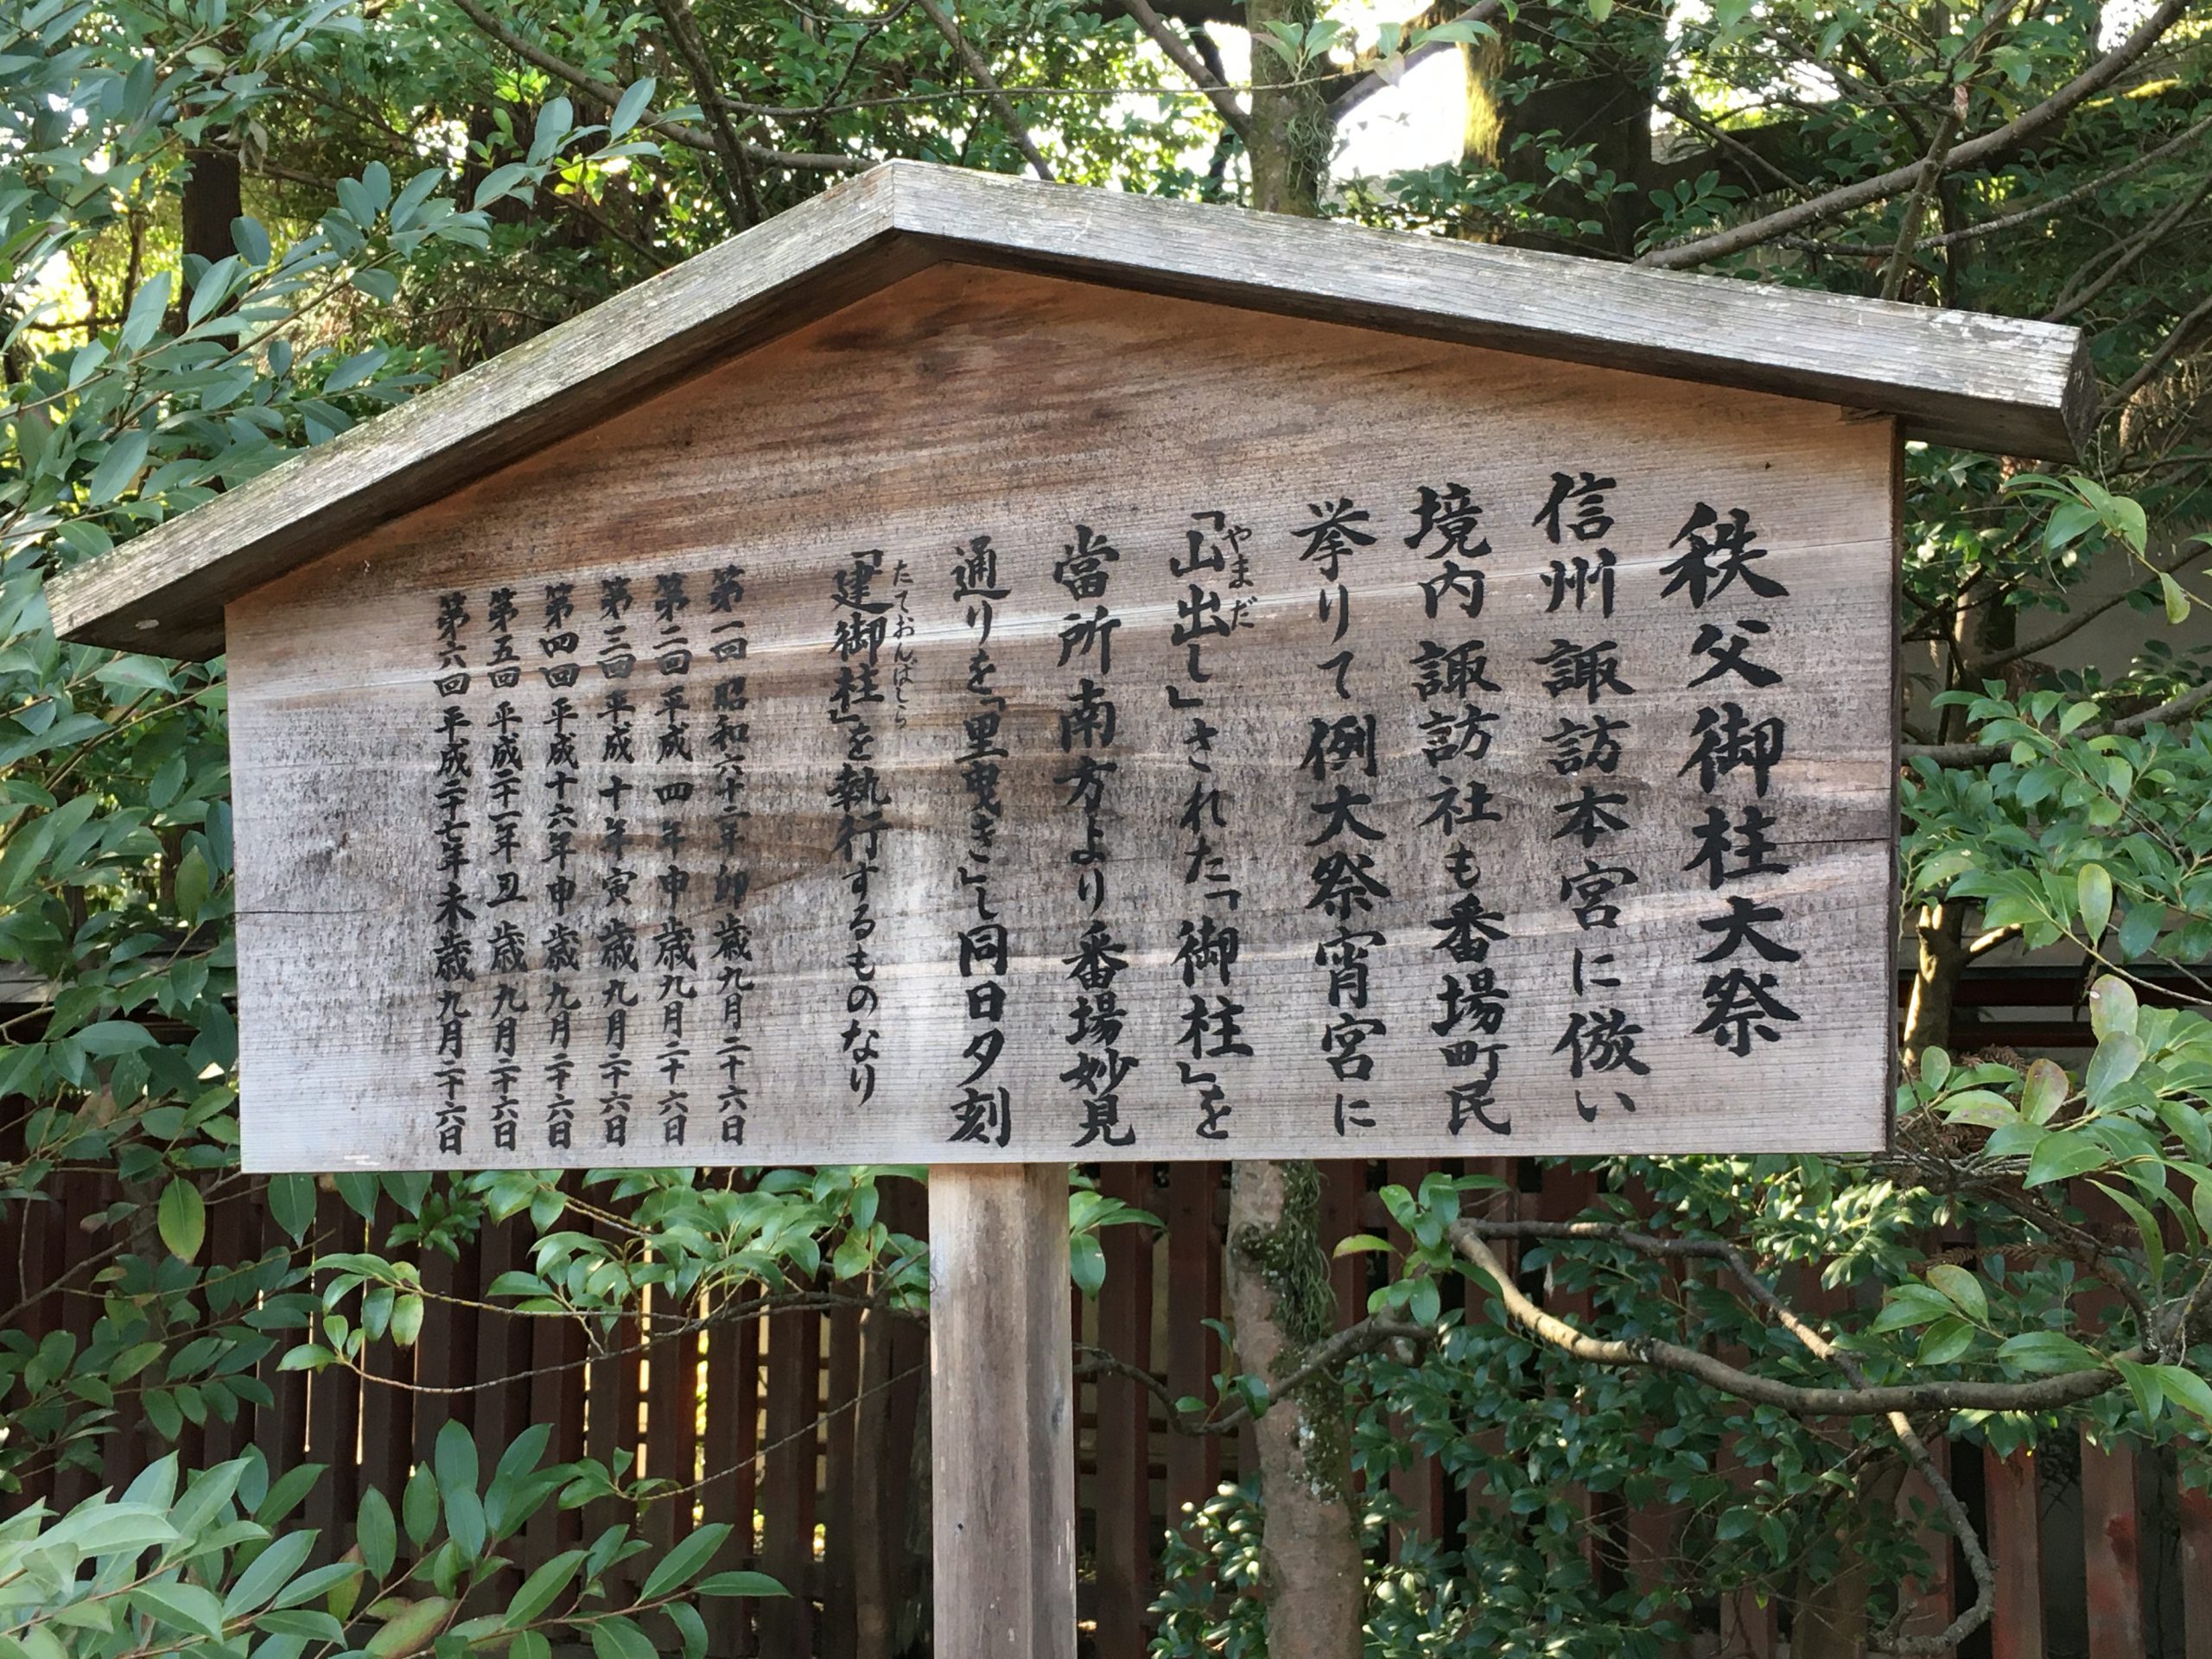 秩父御柱大祭
信州諏訪本宮に倣い
境内諏訪社も番場町民
挙りて例大祭宵宮に
「山出し」された「御柱」を
やまだ
當所南方より番場妙見
通りを「里曳き」し同日夕刻
「建御柱」を執行するものなり
たておんばしら
第一回 昭和六十二年 卯歳九月二十六日
第二回 平成四年申歳九月二十六日
第三回 平成十年寅歳九月二十六日
第四回 平成十六年申歳九月二十六日
第五回 平成二十一年丑歳九月二十六日
第六回 平成二十七年未歳九月二十六日